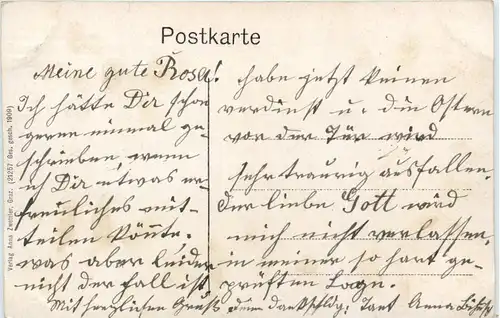 Postkarte
Meine gute Rosa!
Ich hätte Dir schon
gerne einmal ge-
schrieben, wenn
ich Dir etwas er-
freuliches mit-
teilen könnte.
was aber leider
nicht der Fall ist
habe jetzt keinen
verdienst u. die Ostern
vor der Tür wird
sehr traurig ausfallen.
Der liebe Gott wird
mich nicht verlassen,
in meiner so hart ge-
prüften Lage.
Mit herzlichen Gruss Deine dankschldg: Tant Anna
Verlag Anna Zwettler, Graz. (21257 Ger. gesch. 1909)